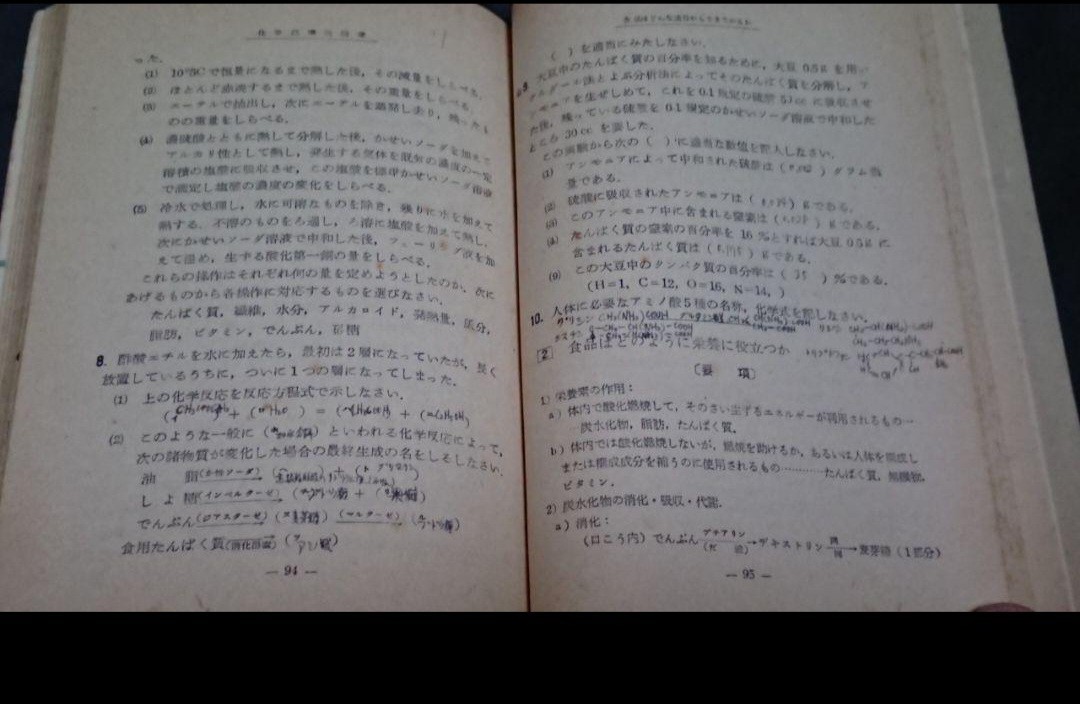 った.
(1) 105°Cで恒量になるまで熱した後, その減量をしらべる.
(2) ほとんど赤熱するまで熱した後, その重量をしらべる.
(3) エーテルで抽出し, 次にエーテルを蒸発し去り, 残ったも
のの重量をしらべる.
(4) 濃硫酸とともに熱して分解した後, かせいソーダを加えて
アルカリ性として熱し, 発生する気体を既知の濃度の一定
容積の塩酸に吸収させ, この塩酸を標準かせいソーダ溶液
で滴定し塩酸の濃度の変化をしらべる.
(5) 冷水で処理し, 水に可溶なものを除き, 残りに水を加えて
熱する. 不溶のものをろ過し, ろ液に塩酸を加えて熱し,
次にかせいソーダ溶液で中和した後, フェーリング液を加
えて温め, 生ずる酸化第一銅の量をしらべる.
これらの操作はそれぞれ何の量を定めようとしたのか, 次に
あげるものから各操作に対応するものを選びなさい.
たんぱく質, 繊維, 水分, アルカロイド, 発熱量, 灰分,
脂肪, ビタミン, でんぷん, 砂糖
8. 酢酸エチルを水に加えたら, 最初は2層になっていたが, 長く
放置しているうちに, ついに1つの層になってしまった.
(1) 上の化学反応を反応方程式で示しなさい.
( ) + (H₂O) = (CH₃COOH) + (C₂H₅OH)
(2) このような一般に ( ) といわれる化学反応によって,
次の諸物質が変化した場合の最終生成の名をしるしなさい.
油 脂 (かせいソーダ) → ( ) + ( )
しょ糖 (インベルターゼ) → (ブドウ糖) + (果糖)
でんぷん (ジアスターゼ) → (麦芽糖) (マルターゼ) → (ブドウ糖)
食用たんぱく質 (消化酵素) → (アミノ酸)
— 94 —
( ) を適当にみたしなさい.
9. 大豆中のたんぱく質の百分率を知るために, 大豆 0.5g を用い
ケルダール法とよぶ分析法によってそのたんぱく質を分解し, ア
ンモニアを生ぜしめて, これを 0.1 規定の硫酸 50 cc に吸収させ
た後, 残っている硫酸を 0.1 規定のかせいソーダ溶液で中和した
ところ 30 cc を要した.
この実験から次の ( ) に適当な数値を記入しなさい.
(1) アンモニアによって中和された硫酸は ( ) グラム当
量である.
(2) 硫酸に吸収されたアンモニアは ( ) g である.
(3) このアンモニア中に含まれる窒素は ( ) g である.
(4) たんぱく質の窒素の百分率を 16 % とすれば大豆 0.5g に
含まれるたんぱく質は ( ) g である.
(9) この大豆中のタンパク質の百分率は ( ) %である.
(H=1, C=12, O=16, N=14, )
10. 人体に必要なアミノ酸5種の名称, 化学式を記しなさい.
グリシン CH₂(NH₂)COOH グルタミン酸
[2] 食品はどのように栄養に役立つか
〔要 項〕
1) 栄養素の作用:
a) 体内で酸化燃焼して, そのさい生ずるエネルギーが利用されるもの…
炭水化物, 脂肪, たんぱく質.
b) 体内では酸化燃焼しないが, 燃焼を助けるか, あるいは人体を構成し
または構成成分を補うのに使用されるもの………たんぱく質, 無機物,
ビタミン.
2) 炭水化物の消化・吸収・代謝.
a) 消化:
(口こう内) でんぷん プチアリン (だ 液) → デキストリン 同 同 → 麦芽糖 (1部分)
— 95 —